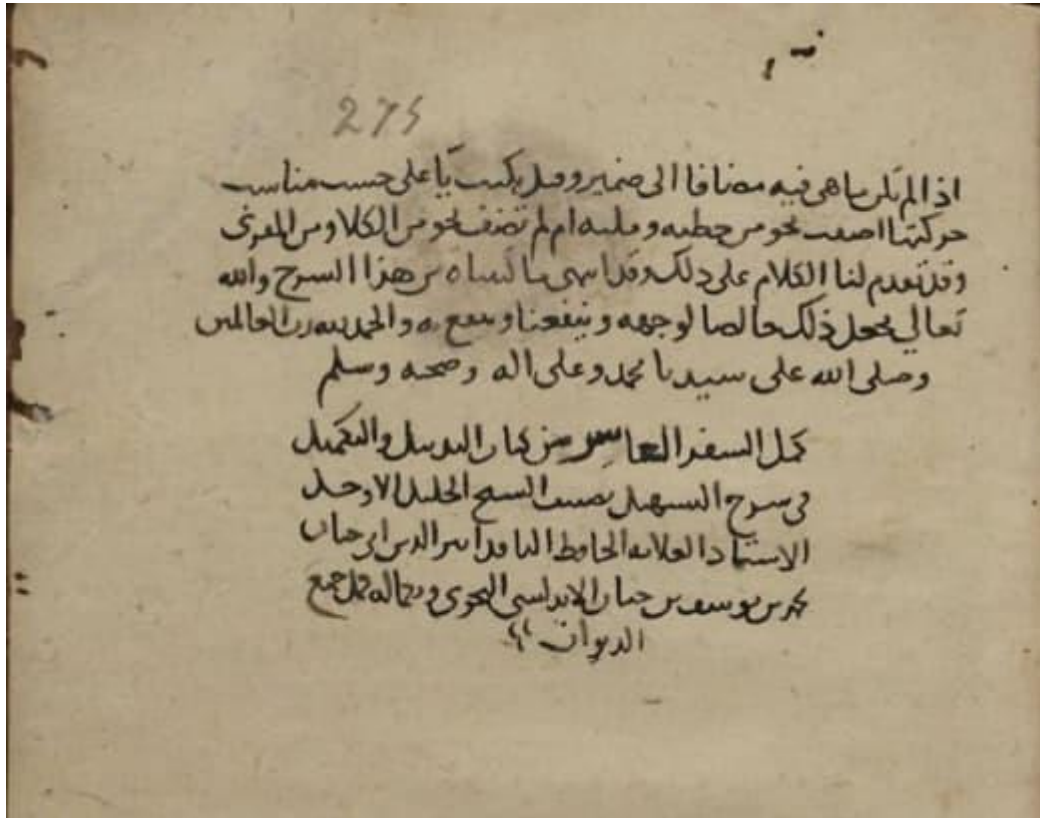 275
اذا لم تكن ما هي فيه مضافا الى ضمير وقيل يكتب يا على حسب مناسب
حركتها اضيفت نحو من خطيه و ام لم تضف نحو من الكلا ومن المقرئ
وقد تقدم لنا الكلام على ذلك وقد انتهى ما من هذا الشرح والله
تعالى يجعل ذلك خالصا لوجهه وينفعنا وينفع به والحمد لله رب العالمين
وصلى الله على سيدنا محمد وعلى اله وصحبه وسلم
كمل السفر العاشر من كتاب التذييل والتكميل
في شرح التسهيل تصنيف الشيخ الجليل الاوحد
الاستاذ العلامه الحافظ الناقد اثير الدين ابي حيان
محمد بن يوسف بن حيان الاندلسي النحوي وبكماله كمل جميع
الديوان